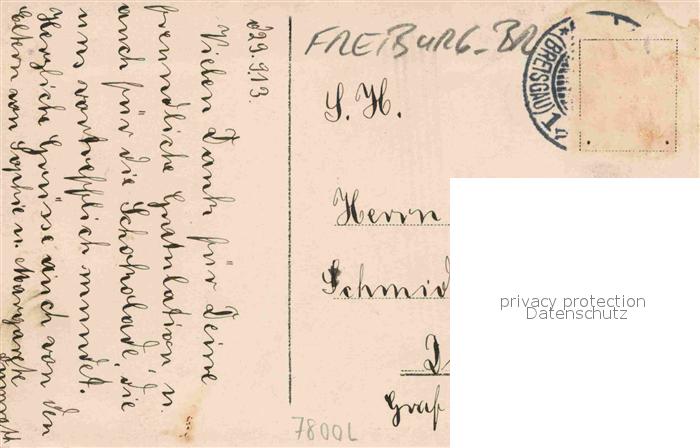 d 29.9.13.
Vielen Dank für Deine
freundliche Gratulation u.
auch für die Schokolade, die
uns vortrefflich mundet.
Herzliche Grüsse auch von den
Eltern von Sophie u. Margarete
FREIBURG-BR
(BREISGAU) 1
S. H.
Herrn
Schmid
D
Graf
7800L
privacy protection
Datenschutz